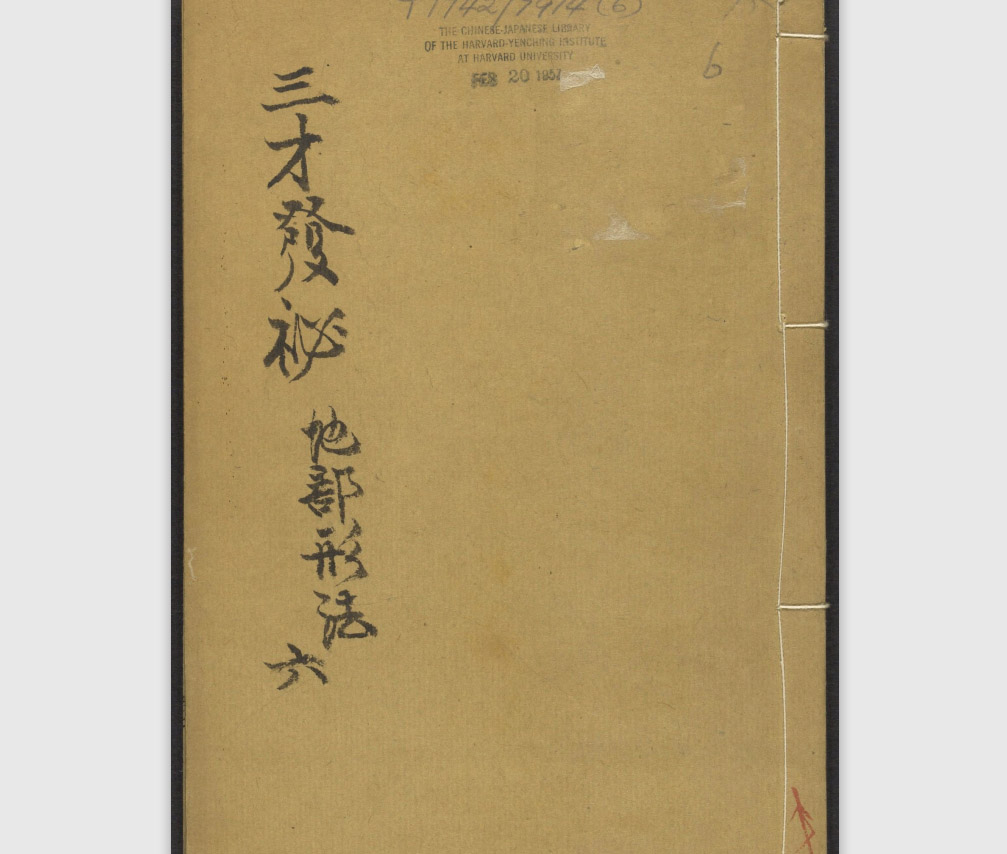 T1742/7914(6)
THE CHINESE-JAPANESE LIBRARY
OF THE HARVARD-YENCHING INSTITUTE
AT HARVARD UNIVERSITY
FEB 20 1957
6
三才發祕
地部形法
六